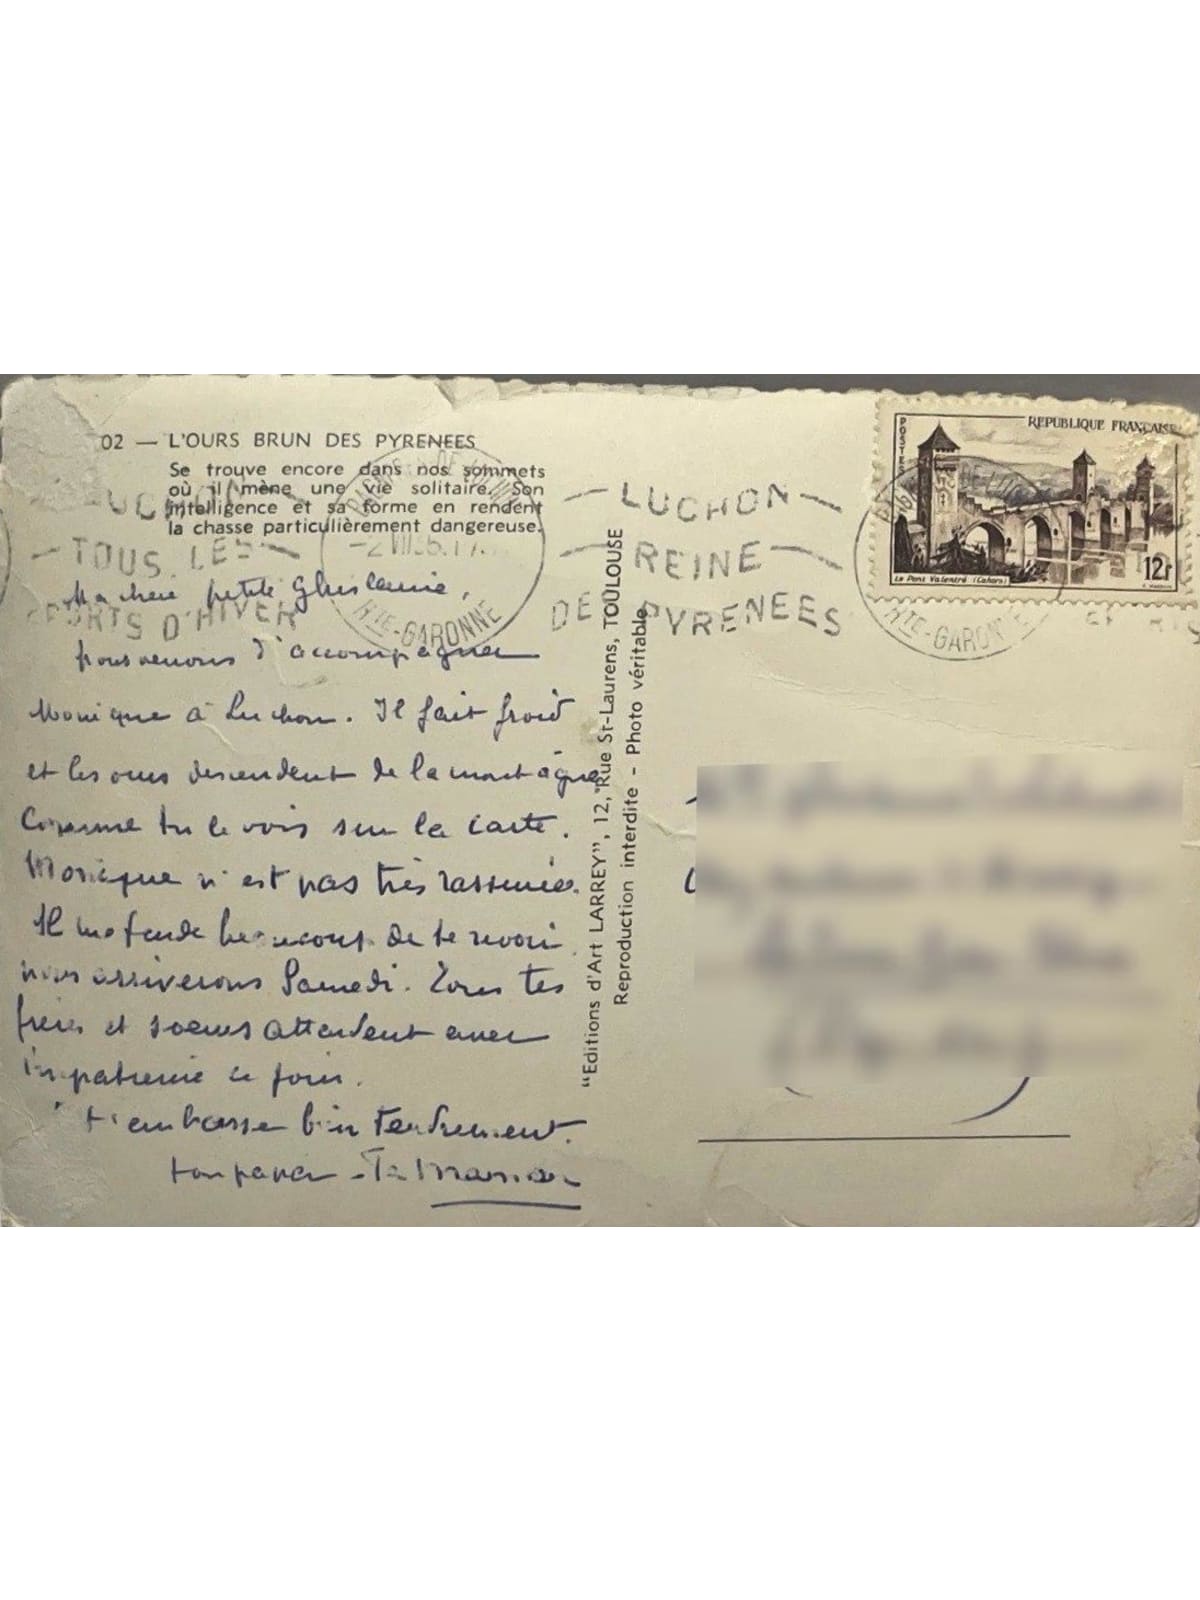 02 — L'OURS BRUN DES PYRENEES
Se trouve encore dans nos sommets
où il mène une vie solitaire. Son
intelligence et sa forme en rendent
la chasse particulièrement dangereuse.
LUCHON
TOUS LES
SPORTS D'HIVER
HTE-GARONNE
LUCHON
REINE
DES PYRENEES
POSTES
REPUBLIQUE FRANÇAISE
Le Pont Valentré (Cahors)
12f
HTE-GARONNE
Ma chère petite Ghislaine,
nous venons d'accompagner
Monique à Luchon. Il fait froid
et les ours descendent de la montagne
comme tu le vois sur la carte.
Monique n'est pas très rassurée.
Il me tarde beaucoup de te revoir.
nous arriverons Samedi. Tous tes
frères et soeurs attendent avec
impatience ce jour.
t'embrasse bien tendrement.
ton papa - Ta Maman
"Editions d'Art LARREY", 12, Rue St-Laurens, TOULOUSE
Reproduction interdite - Photo véritable